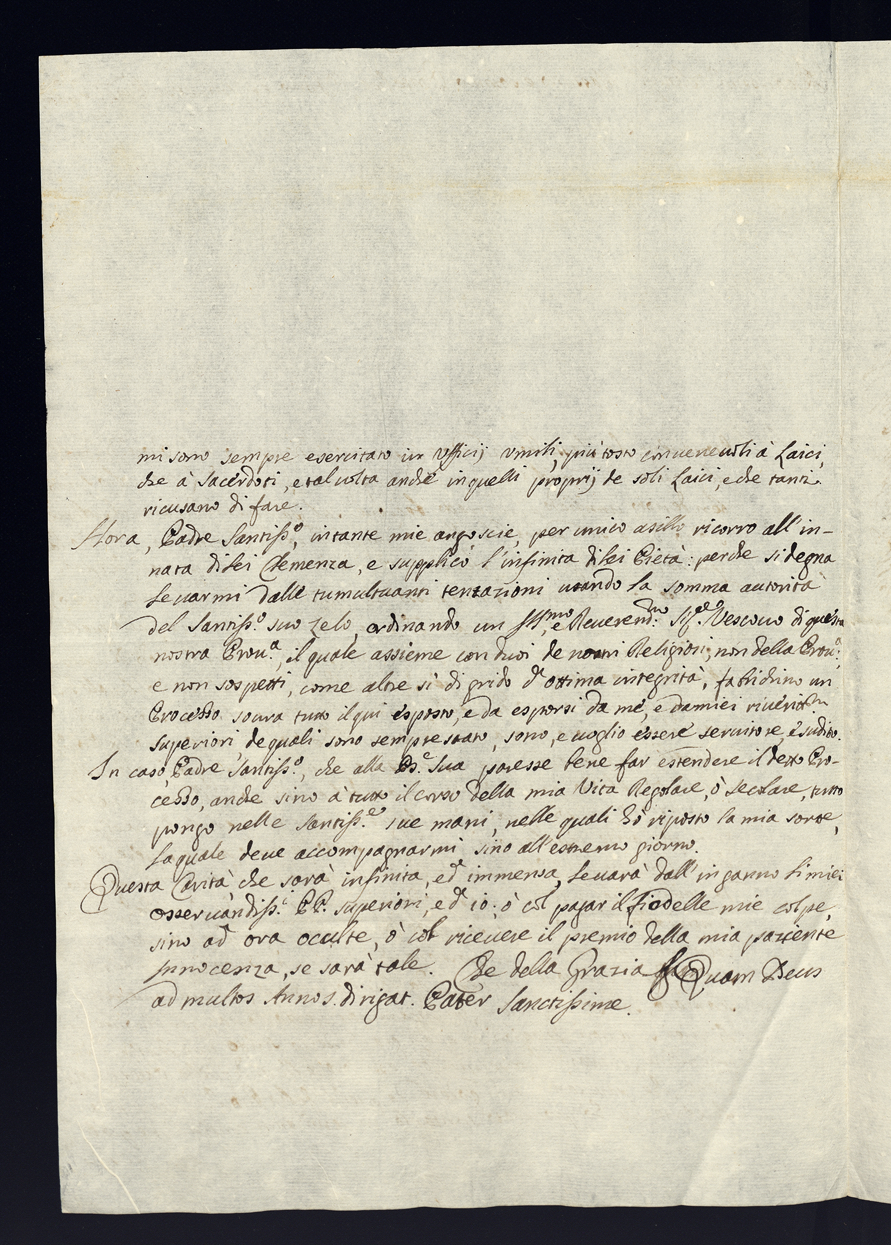 mi sono sempre esercitato in Vfficij vmili, più tosto conueneuoli à Laici,
che à Sacerdoti, e tal uolta anche in quelli proprij de soli Laici, e che tanti
ricusano di fare.
Hora, Padre Santiss.º, in tante mie angoscie, per unico asillo ricorro all' in-
nata di Lei Clemenza, e supplico l' infinita di Lei Pietà: perche si degna
leuarmi dalle tumultuanti tentazioni usando la somma autorità
del Santiss.º suo Zelo, ordinando un Ill.mo, e Reuerend.mo Vescouo di questa
nostra Prou.a, il quale assieme con duoi de nostri Religiosi, non della Prou.a,
e non sospetti, come altre sì di grido d' ottima integrità, fabrichino un
Processo soura tutto il qui esposto, e da esporsi da me, e da miei
Superiori de quali sono sempre stato, sono, e uoglio essere seruitore, e sudito.
In caso, Padre Santiss.º, che alla Sua paresse bene far estendere il detto Pro-
cesso, anche sino à tutto il corso della mia Vita Regolare, ò Secolare, tutto
pongo nelle Santiss.e sue mani, nelle quali hò riposto la mia sorte,
la quale deue accompagnarmi sino all' estremo giorno.
Questa Carità che sarà infinita, ed immensa, leuarà dall' inganno li miei
osseruandiss.i PP. Superiori, ed io: ò col pagar il fio delle mie colpe,
sino ad ora occulte, ò col riceuere il premio della mia paziente
innocenza, se sarà tale. Che della Grazia Quam Deus
ad multos Annos dirigat. Pater Sanctissime.